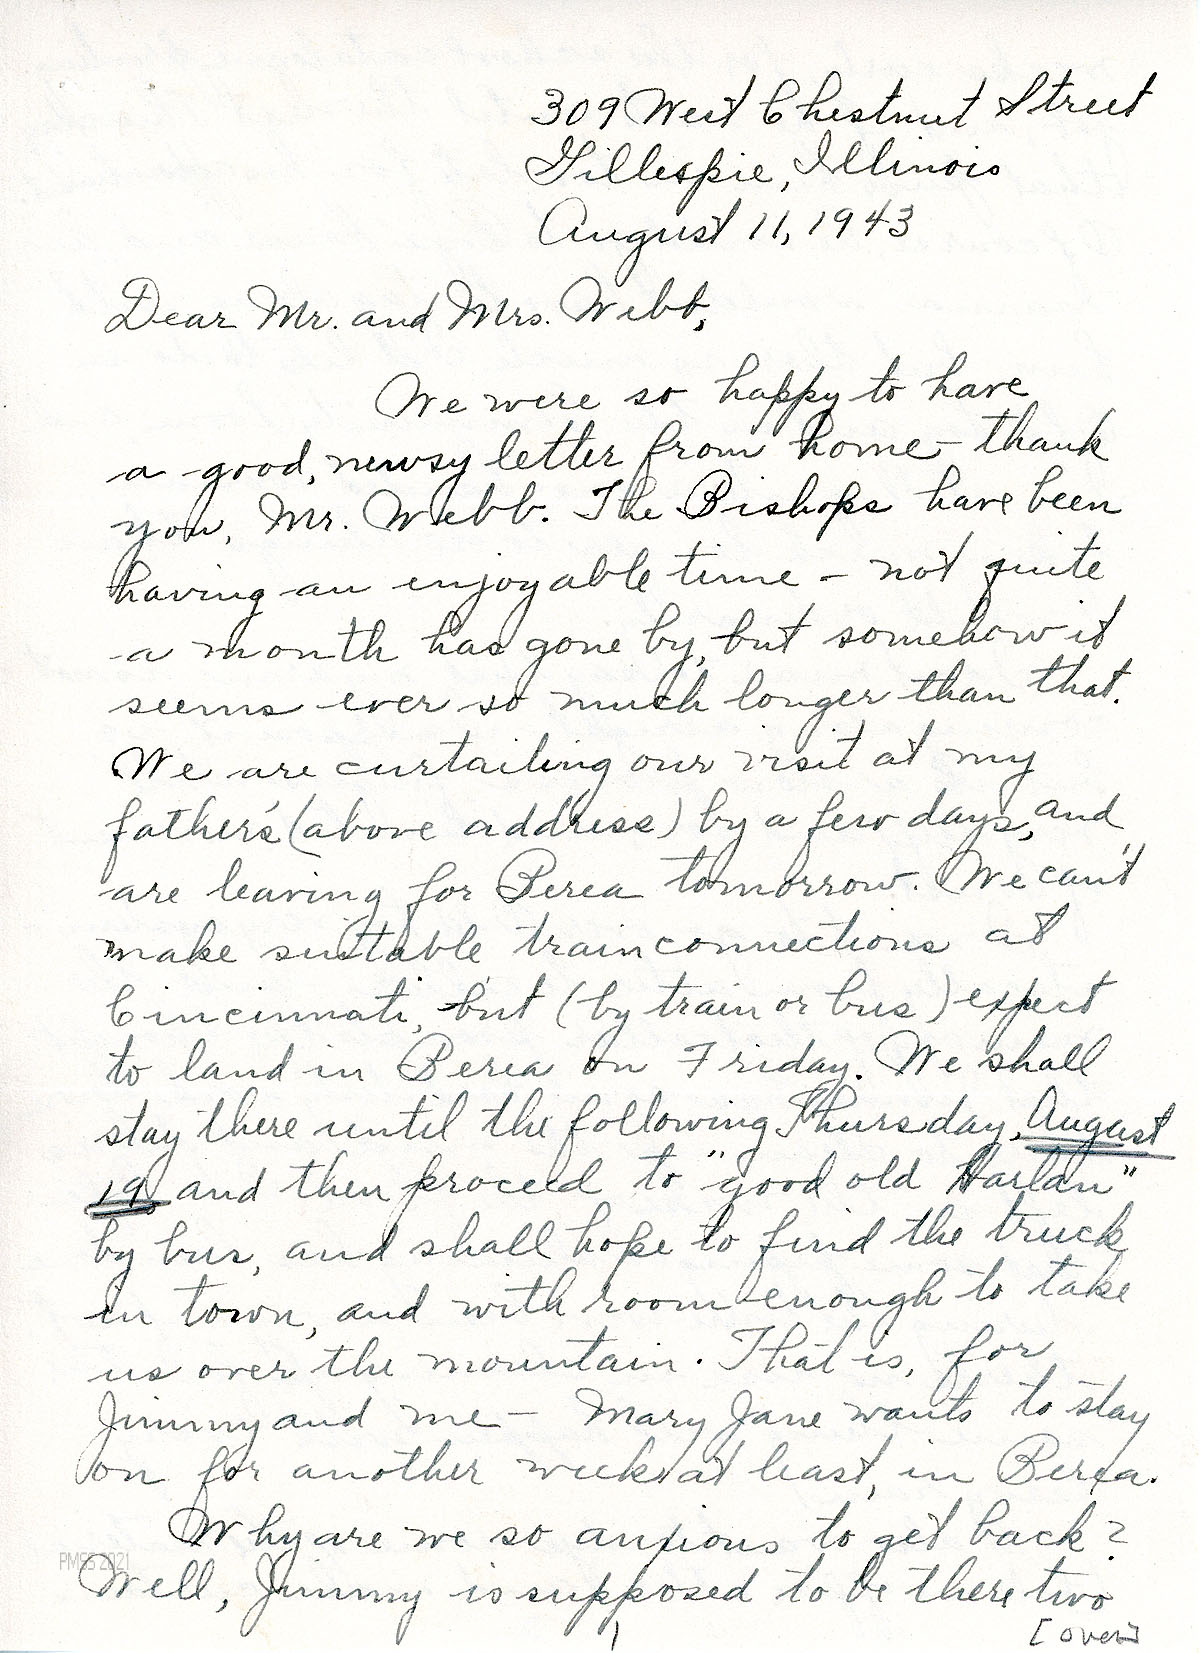 309 West Chestnut Street
Gillespie, Illinois
August 11, 1943
Dear Mr. and Mrs. Webb,
We were so happy to have
a good, newsy letter from home — thank
you, Mr. Webb. The Bishops have been
having an enjoyable time — not quite
a month has gone by, but somehow it
seems ever so much longer than that.
We are curtailing our visit at my
father's (above address) by a few days, and
are leaving for Berea tomorrow. We can't
make suitable train connections at
Cincinnati, but (by train or bus) expect
to land in Berea on Friday. We shall
stay there until the following Thursday, August
19, and then proceed to "good old Harlan"
by bus, and shall hope to find the truck
in town, and with room enough to take
us over the mountain. That is, for
Jimmy and me — Mary Jane wants to stay
on for another week at least, in Berea.
Why are we so anxious to get back?
PMSS 2021
Well, Jimmy is supposed to be there two
[over]